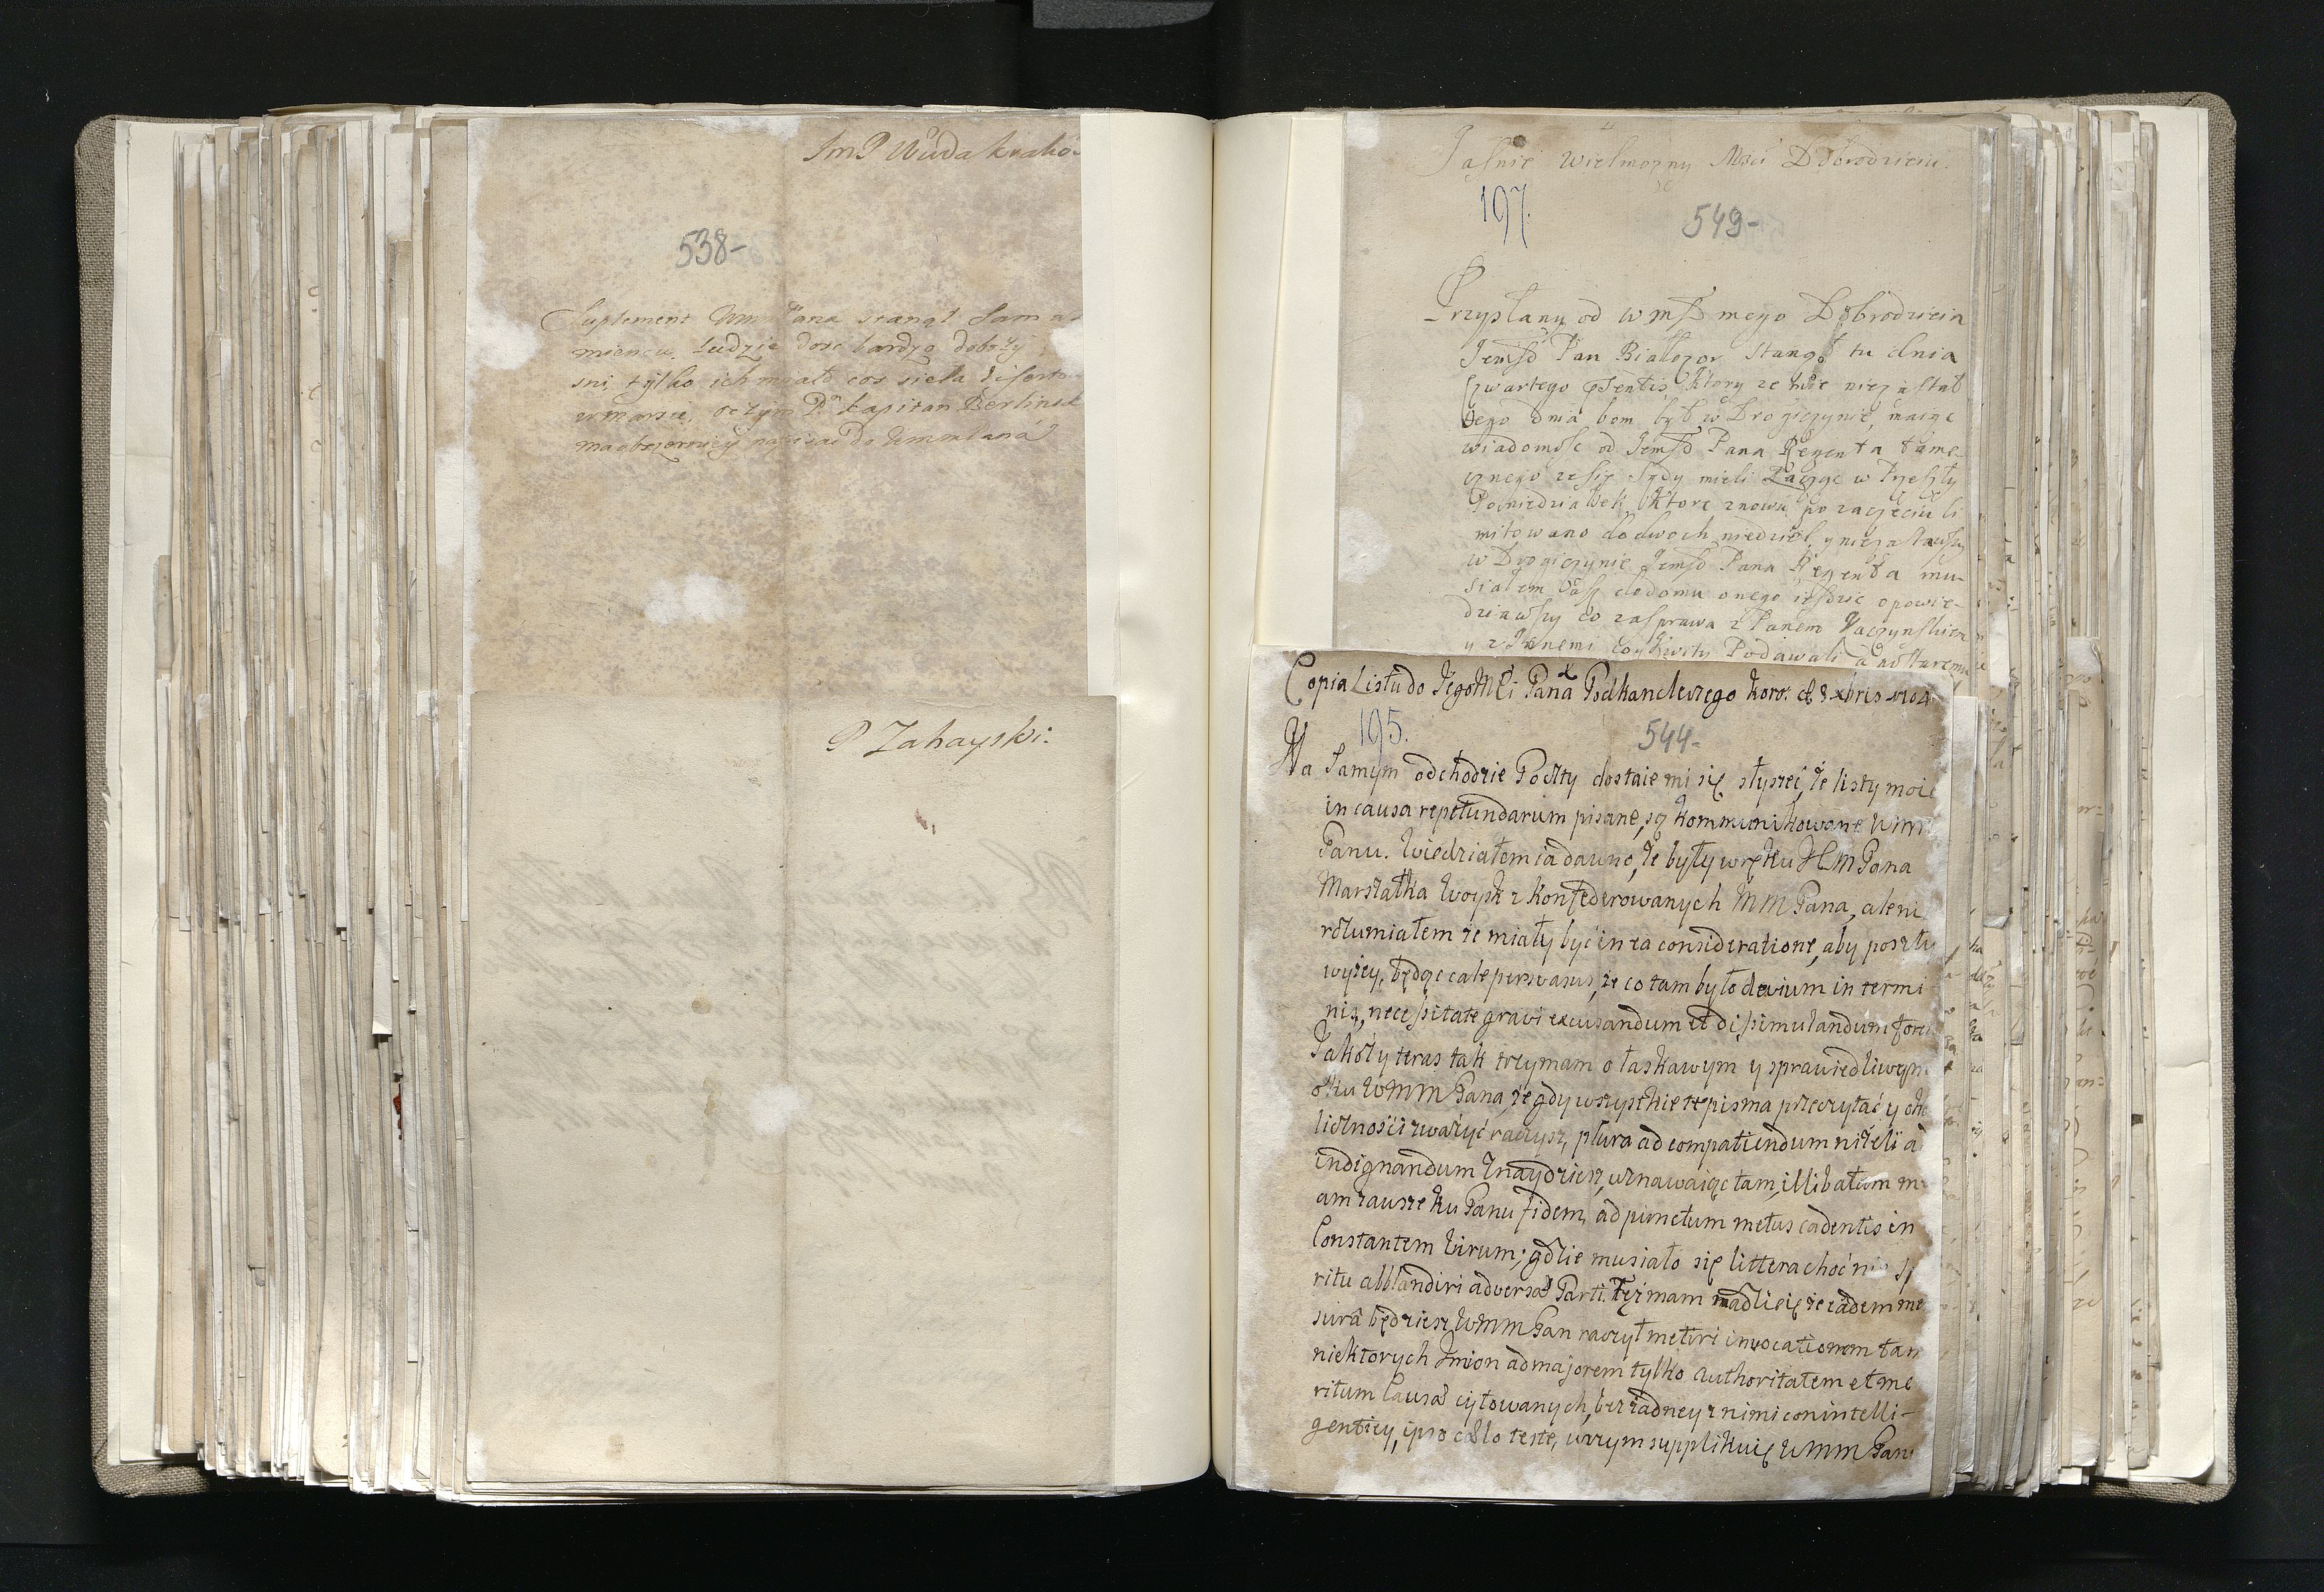 JmP Wuda krako
538-
Suplement WmmPana stanął Sam w
miencu, Ludzie dosc bardzo dobrzy
sni, tylko ich miało cos sieła
w marsie, o czym Pn kapitan Berlinsk
ma obszerniey napisac do WmmPana
P Zahayski:
Jasnie Wielmozny Msci Dobrodzieiu.
197.
549-
Przysłany od wmsP mego Dobrodzieia
Jemsć Pan Białozor Stanął tu dnia
Czwartego Psentis, Ktory ze mie nie zastał
tego dnia bom był w Drogiczynie, maiąc
wiadomosc od Jemsć Pana Regenta tame-
cznego ze się Sądy mieli Zacząc w Przeszły
Poniedziałek Ktore znowu po zaczęciu li
mitowano do dwoch niedziel, y nie zastawszy
w Drogiczynie Jemsć Pana Regenta mu-
siałem iasz do domu onego iezdzic opowie-
dziawszy co za sprawa z Panem Vaczynskiem
y z Jnnemi Podawali a
Copia Listu do JegoMCi Pana Podkanclerzego Koro: d 8 xbris 1704
195.
544-
Na Samym odchodzie Poczty dostaie mi się słyszeć, że listy moie
in causa repetundarum pisane, są kommunikowane WMM
Panu. Wiedziałem ia dawno, że były w ręku JCMPana
Marszałka Woysk z konfederowanych MMPana, ale ni
rozumiałem ze miały być in ea consideratione, aby poszły
wyżey, będąc cale persvasus, że co tam było devium in termi
nis, necessitate gravi excusandum et dissimulandum fore
Jakoż y teras tak trzymam o łaskawym y sprawiedliwym
oku WMMPana, że gdy wszystkie te pisma przeczytać y oko
liczności zważyć raczysz, plura ad compatiendum niżeli a
indignandum Znaydziesz, uznawaiąc tam, illibatam m
am zawsze ku Panu fidem, ad punctum metus cadentis in
Constantem Virum; gdzie musiało się littera choć nie Sp
ritu abblandiri adversæ Parti. Też mam nadzieię że eadem me
surâ będziesz WMMPan raczył metiri invocationem tam
niektorych Jmion ad majorem tylko authoritatem et me
ritum Causæ cytowanych, bez żadney z nimi conintelli-
gentiey, ipso cœlo teste, w czym supplikuię WMMPanu